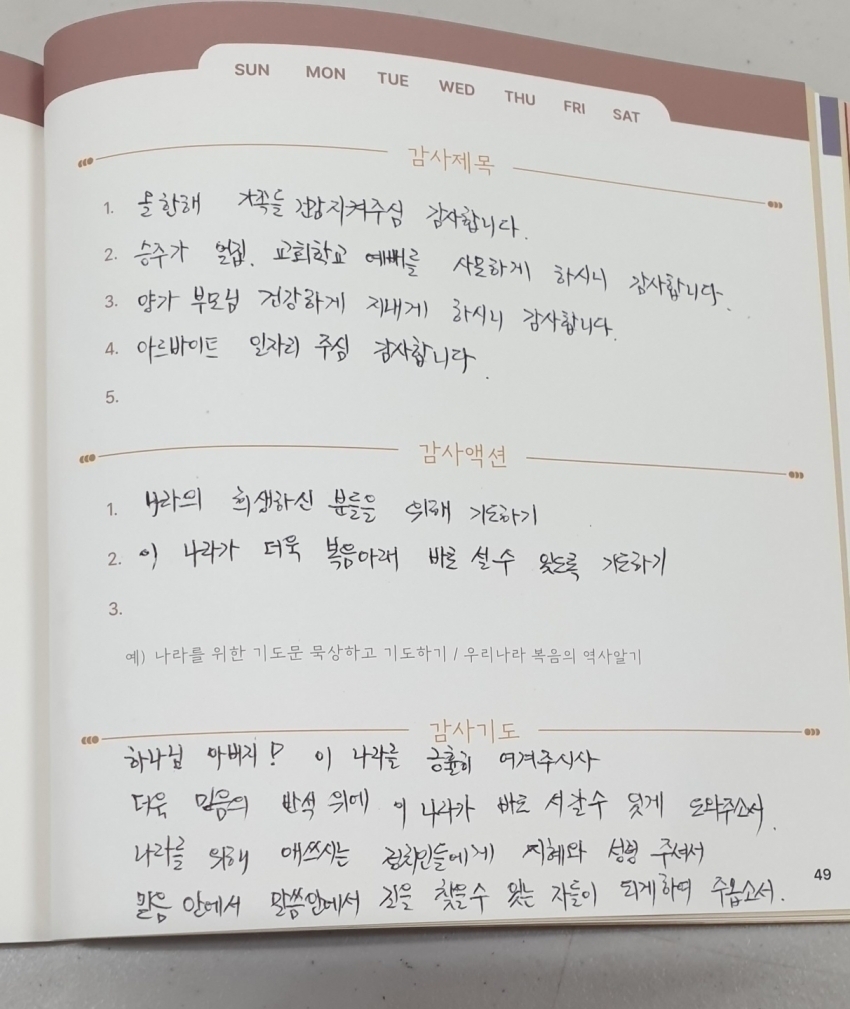 SUN MON TUE WED THU FRI SAT
감사제목
1. 올한해 가족들 건강지켜주심 감사합니다.
2. 승주가 얼집. 교회학교 예배를 사모하게 하시니 감사합니다.
3. 양가 부모님 건강하게 지내게 하시니 감사합니다.
4. 아르바이트 일자리 주심 감사합니다.
5.
감사액션
1. 나라의 희생하신 분들을 위해 기도하기
2. 이 나라가 더욱 복음아래 바로 설수 있도록 기도하기
3.
예) 나라를 위한 기도문 묵상하고 기도하기 / 우리나라 복음의 역사알기
감사기도
하나님 아버지! 이 나라를 긍휼히 여겨주시사
더욱 믿음의 반석 위에 이 나라가 바로 서갈수 있게 도와주소서.
나라를 위해 애쓰시는 정치인들에게 지혜와 성령 주셔서
말씀 안에서 말씀안에서 길을 찾을수 있는 자들이 되게하여 주옵소서.
49